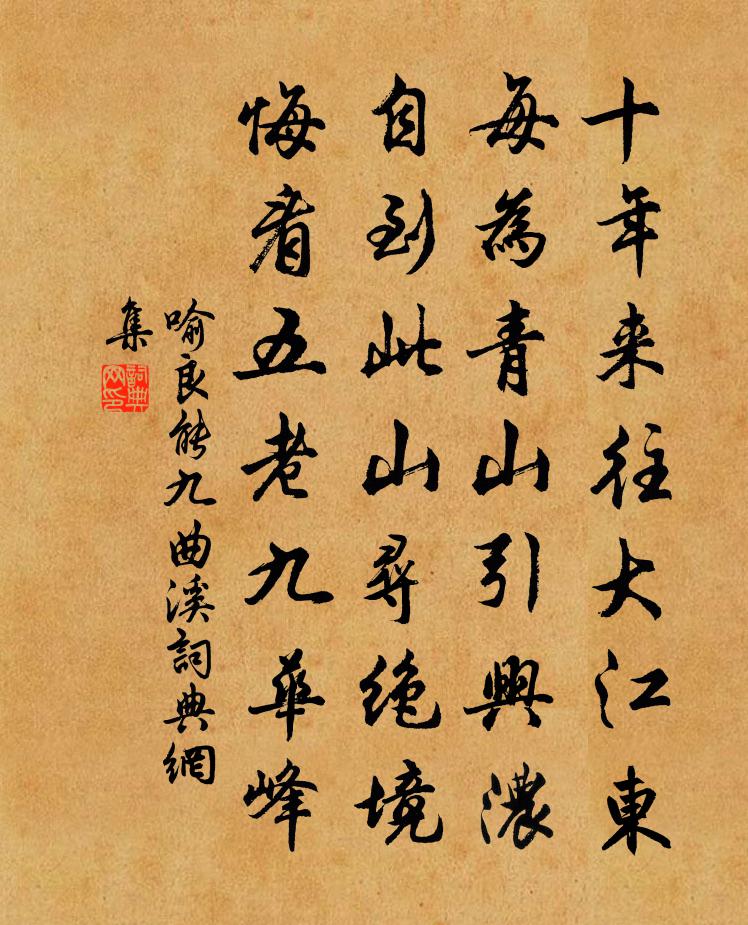 十年来往大江東
每為青山引興濃
自到此山尋絶境
悔看五老九華峰
喻良能九曲溪詞典網
集
詞典
网印